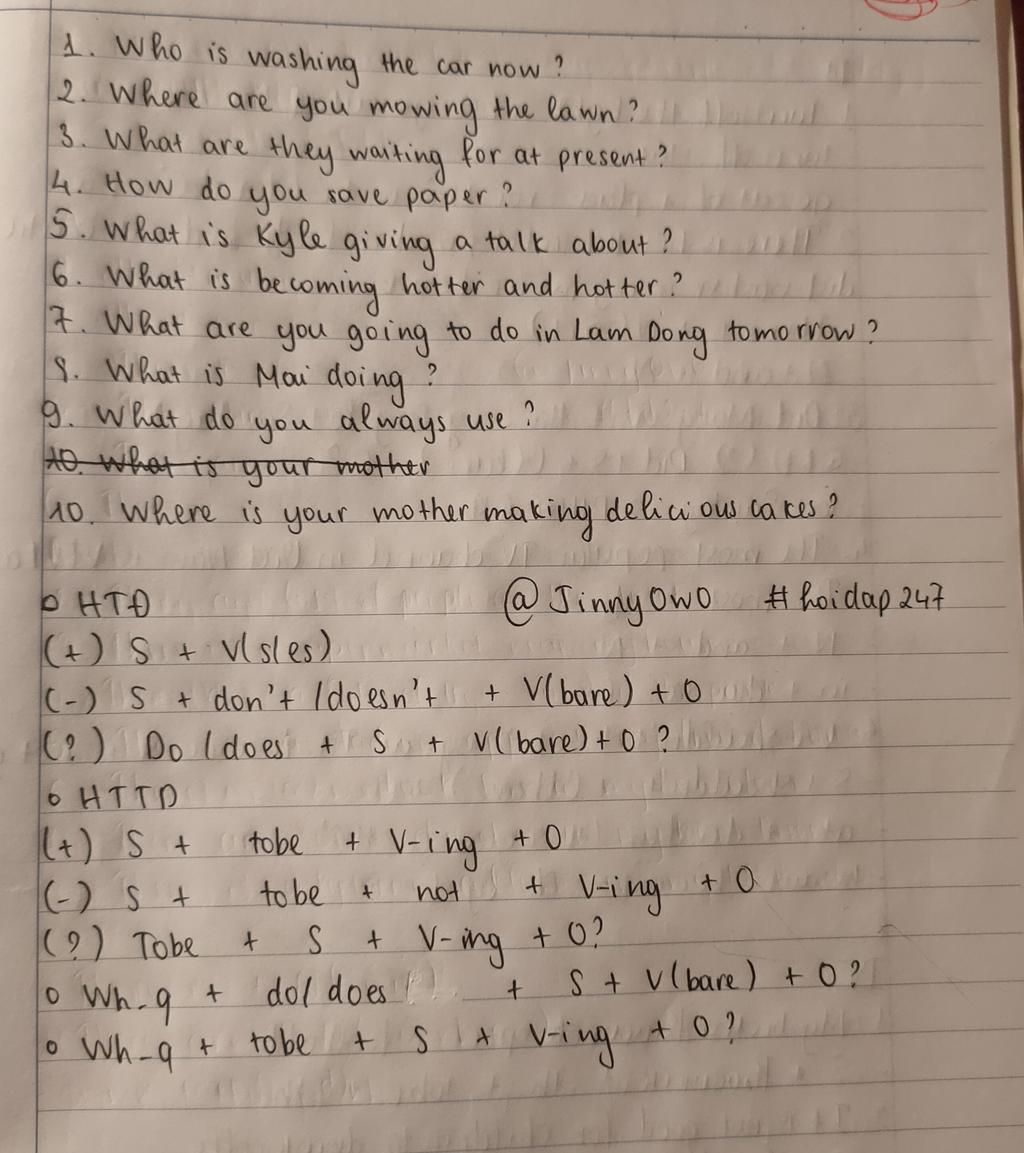 1. Who is washing the car now?
2. Where are you mowing the lawn?
3. What are they waiting for at present?
4. How do you save paper?
5. What is Kyle giving a talk about?
6. What is becoming hotter and hotter?
7. What are you going to do in Lam Dong tomorrow?
8. What is Mai doing?
9. What do you always use?
10. What is your mother
10. Where is your mother making delicious cakes?
o HTĐ @JinnyOwO #hoidap247
(+) S + V(s/es)
(-) S + don't /doesn't + V(bare) + O
(?) Do /does + S + V(bare) + O ?
o HTTD
(+) S + tobe + V-ing + O
(-) S + tobe + not + V-ing + O
(?) Tobe + S + V-ing + O?
o Wh-q + do/does + S + V(bare) + O?
o Wh-q + tobe + S + V-ing + O?